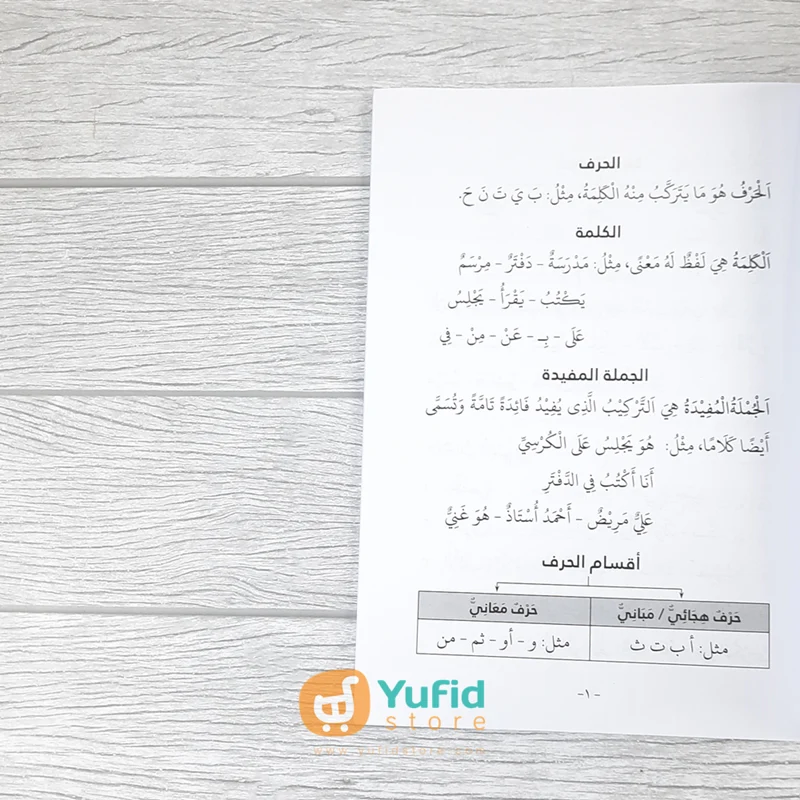 الحرف
اَلْحَرْفُ هُوَ مَا يَتَرَكَّبُ مِنْهُ الْكَلِمَةُ، مِثْلُ: بَ يَ تَ نَ حَ.
الكلمة
اَلْكَلِمَةُ هِيَ لَفْظٌ لَهُ مَعْنًى، مِثْلُ: مَدْرَسَةٌ - دَفْتَرٌ - مِرْسَمٌ
يَكْتُبُ - يَقْرَأُ - يَجْلِسُ
عَلَى - بِـ - عَنْ - مِنْ - فِي
الجملة المفيدة
اَلْجُمْلَةُ الْمُفِيْدَةُ هِيَ اَلتَّرْكِيْبُ الَّذِى يُفِيْدُ فَائِدَةً تَامَّةً وَتُسَمَّى
أَيْضًا كَلَامًا، مِثْلُ: هُوَ يَجْلِسُ عَلَى الْكُرْسِيِّ
أَنَا أَكْتُبُ فِي الدَّفْتَرِ
عَلِيٌّ مَرِيْضٌ - أَحْمَدُ أُسْتَاذٌ - هُوَ غَنِيٌّ
أقسام الحرف
حَرْفٌ هِجَائِيٌّ / مَبَانِيٌّ حَرْفٌ مَعَانِيٌّ
مثل: أ ب ت ث مثل: و - أو - ثم - من
-١-
Yufid
store
www.yufidstore.com